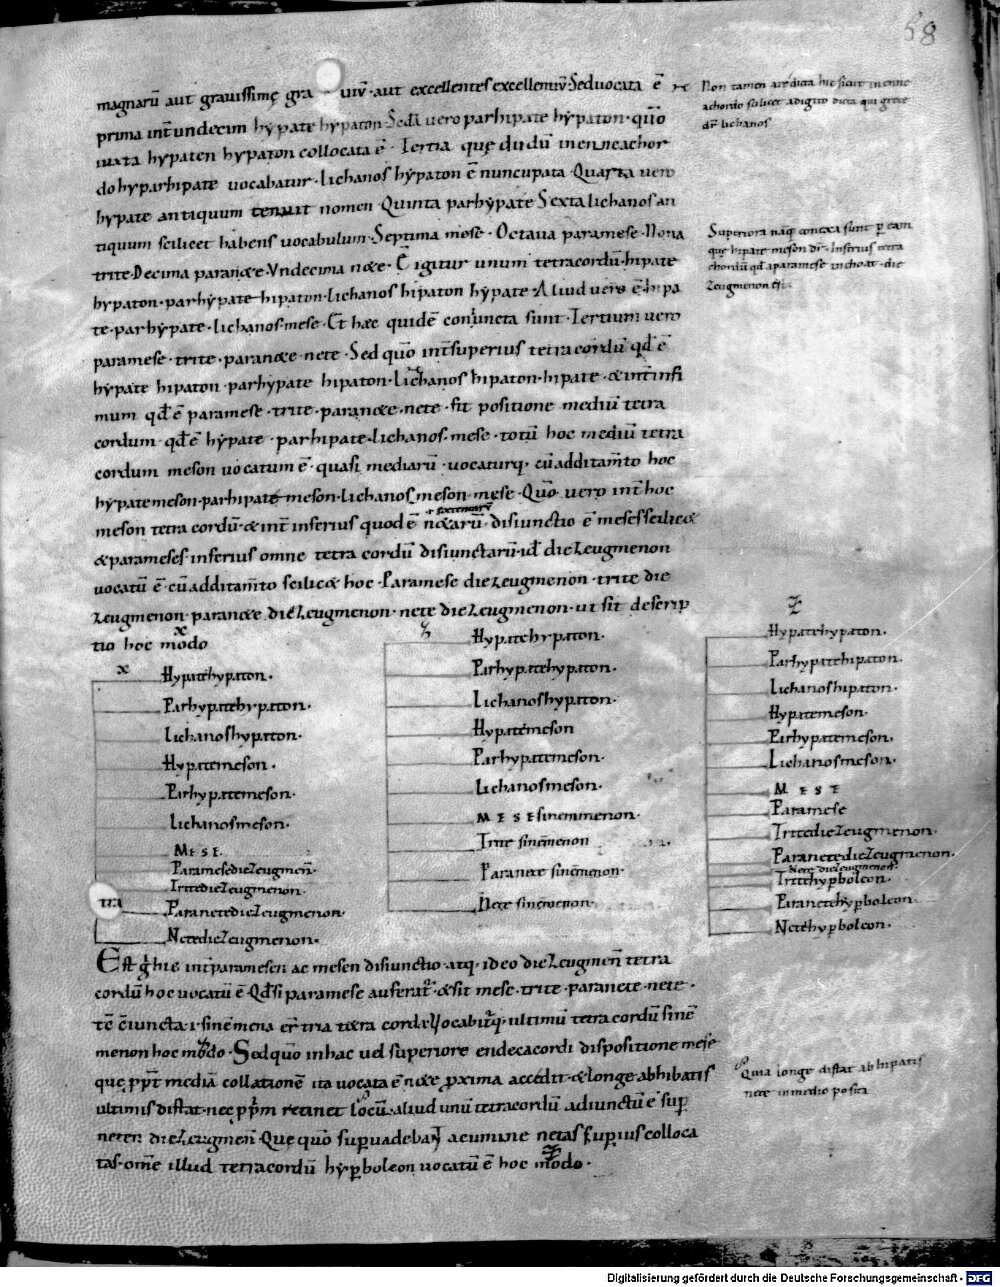 58
magnarū aut grauissimę gra uiū· aut excellentes excellentiū· Sed uocata ē
prima int undecim hypate hypaton· Secđa uero parhipate hypaton· quō
iuxta hypaten hypaton collocata ē· Tertia quę dudū in enneachor
do hyparhipate uocabatur· lichanos hypaton ē nuncupata· Quarta uero
hypate antiquum tenuit nomen· Quinta parhypate· Sexta lichanos an
tiquum scilicet habens uocabulum· Septima mese· Octaua paramese· Nona
trite· Decima paranete· Vndecima nete· Ē igitur unum tetracordū· hipate
hypaton· parhypate hipaton· lichanos hipaton hypate· Aliud uero ē· hipa
te· parhypate· lichanos· mese· Et hæc quidē coniuncta sunt· Tertium uero
paramese· trite· paranete· nete· Sed quō int superius tetracordū qđ ē
hypate hipaton· parhypate hipaton· lichanos hipaton· hipate· & int infi
mum qđ ē paramese· trite· paranete· nete· sit positione mediū tetra
cordum· qđ ē hypate· parhipate· lichanos· mese· totū hoc mediū tetra
cordum meson uocatum ē· quasi mediarū· uocaturq· cū additamto hoc
hypate meson· parhipate meson· lichanos meson· mese· Quō uero int hoc
meson tetracordū· & int inferius quod ē netarū· disiunctio ē meses scilicet
& parameses· inferius omne tetracordū disiunctarū· id diezeugmenon
uocatū ē· cū additamto scilicet hoc· Paramese diezeugmenon· trite die
zeugmenon· paranete diezeugmenon· nete diezeugmenon· ut sit descrip
tio hoc modo
Hypatehypaton·
Parhypatehypaton·
Lichanoshypaton·
Hypatemeson·
Parhypatemeson·
Lichanosmeson·
MESE·
Paramesediezeugmen̄·
Tritediezeugmenon·
Paranetediezeugmenon·
Netediezeugmenon·
Hypatehypaton·
Parhypatehypaton·
Lichanoshypaton·
Hypatemeson
Parhypatemeson·
Lichanosmeson·
MESE sinemmenon·
Trite sinēmenon
Paranete sinēmenon·
Nete sinēmenon·
Hypatehypaton·
Parhypatehipaton·
Lichanoshipaton·
Hypatemeson·
Parhypatemeson·
Lichanosmeson·
MESE
Paramese
Tritediezeugmenon·
Paranetediezeugmenon·
Nete diezeugmenon·
Tritehypboleon·
Paranetehypboleon·
Netehypboleon·
Est g hic int paramesen ac mesen disiunctio· atq· ideo diezeugmen̄ tetra
cordū hoc uocatū ē· Qđ si paramese auferat· & sit mese· trite· paranete· nete·
tc̄ c̄iuncta· i· sinēmena ert tria tetracorda· & uocabitq· ultimū tetracordū sinē
menon hoc modo· Sed quō in hac uel superiore endecacordi dispositione mese
que ppt mediā collationē ita uocata ē· nete proxima accedit· & longe ab hibatis
ultimis distat· nec pprm retinet locū· aliud unū tetracordū adiunctū ē sup
neten diezeugmen̄· Que quō supuadebat acumine netas supius colloca
tas· ome illud tetracordū hypboleon uocatū ē hoc modo·
Non tamen ut dicta hic sicut in enne
achordo scilicet a digito dicta qui grece
dr̄ lichanos
Superiora naq connexa sunt p eam
que hipate meson dr̄· Inferius tetra
chordū qđ a paramese inchoat· die
zeugmenon est
Quia longe distat ab hipatis
nete in medio posita
Digitalisierung gefördert durch die Deutsche Forschungsgemeinschaft · DFG